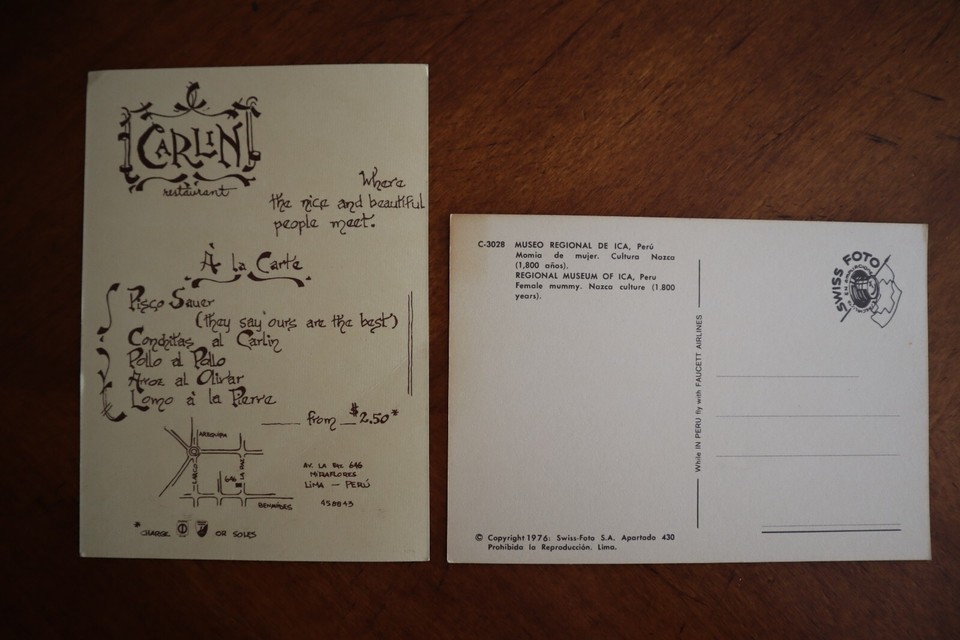 CARLIN
restaurant
Where
the nice and beautiful
people meet.
À la Carte
Pisco Sauer
(they say ours are the best)
Conchitas al Carlin
Pollo al Pollo
Arroz al Olivar
Lomo à la Pierre
from $2.50*
AREQUIPA
LARCO
LA PAZ
646
BENAVIDES
AV. LA PAZ 646
MIRAFLORES
LIMA — PERÚ
458843
*CHARGE OR SOLES
C-3028 MUSEO REGIONAL DE ICA, Perú
Momia de mujer. Cultura Nazca
(1,800 años).
REGIONAL MUSEUM OF ICA, Peru
Female mummy. Nazca culture (1.800
years).
© Copyright 1976: Swiss-Foto S.A. Apartado 430
Prohibida la Reproducción. Lima.
While IN PERU fly with FAUCETT AIRLINES
SWISS FOTO